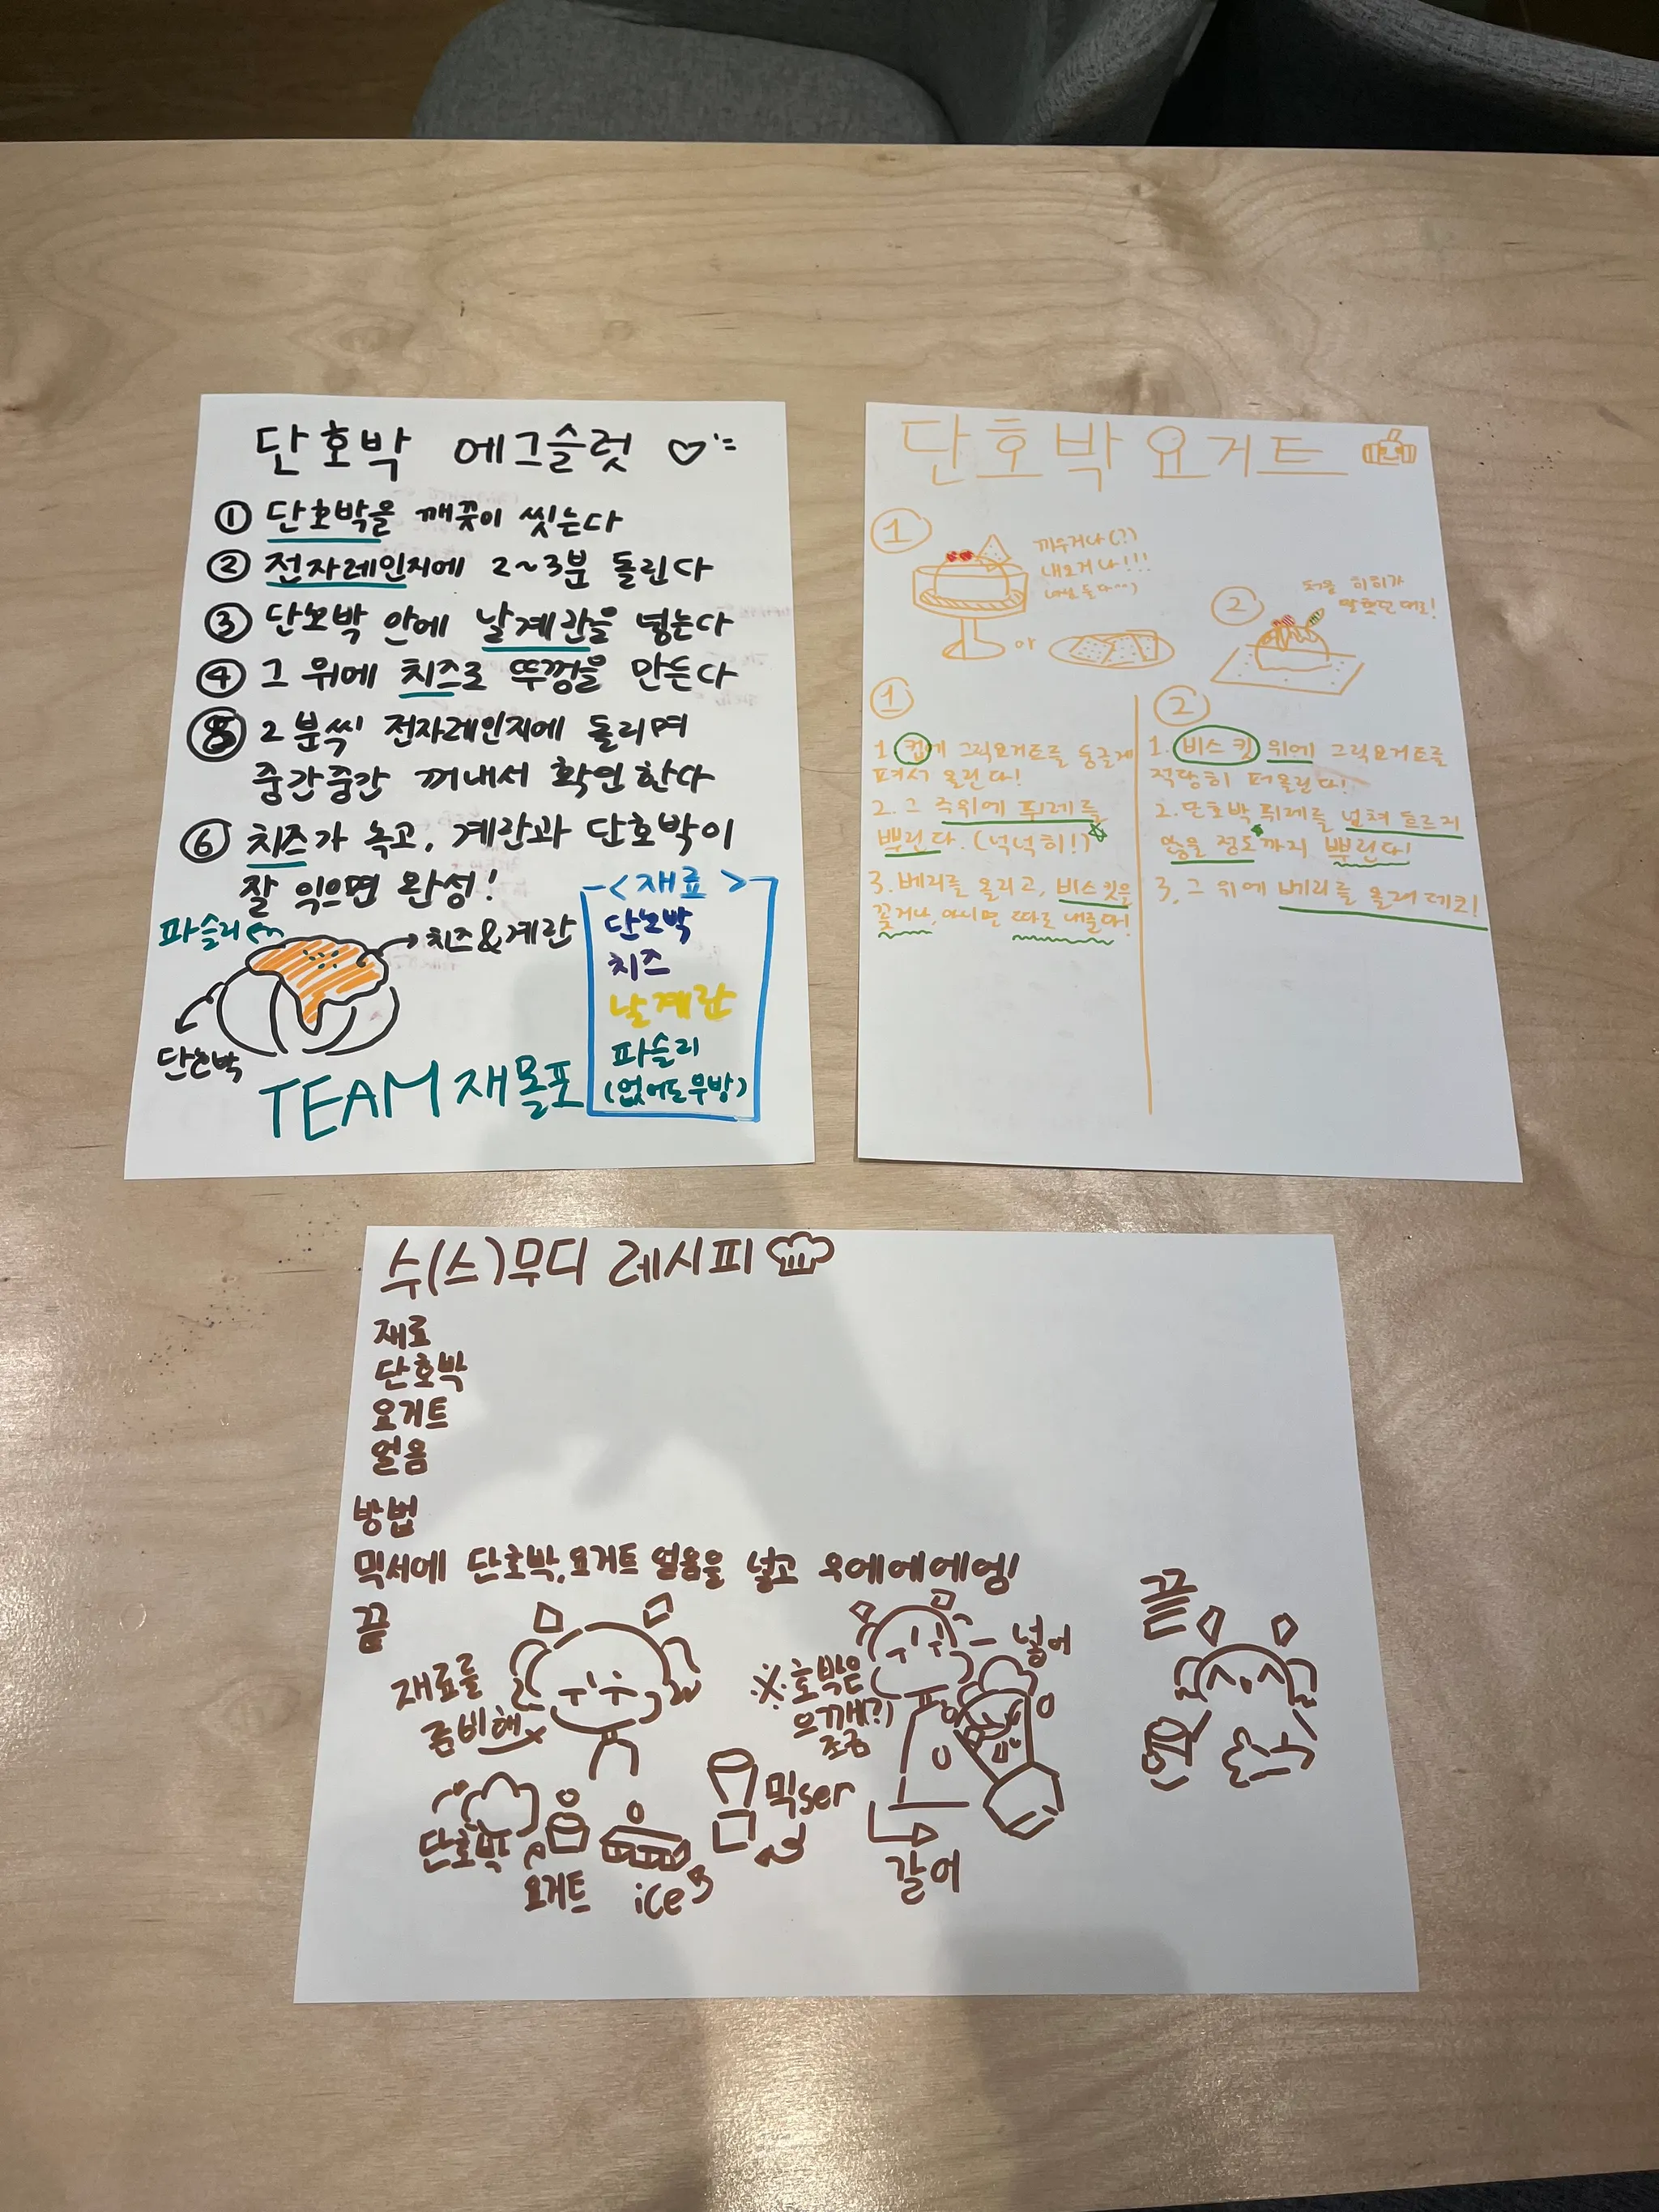 단호박 에그슬럿
① 단호박을 깨끗이 씻는다
② 전자레인지에 2~3분 돌린다
③ 단호박 안에 날계란을 넣는다
④ 그 위에 치즈로 뚜껑을 만든다
⑤ 2분씩 전자레인지에 돌리며
중간중간 꺼내서 확인한다
⑥ 치즈가 녹고, 계란과 단호박이
잘 익으면 완성!
파슬리
치즈&계란
단호박
TEAM 재몰포
<재료>
단호박
치즈
날계란
파슬리
(없어도 무방)
단호박 요거트
①
끼우거나(?)
내오거나!!!
or
②
①
1. 컵에 그릭요거트를 둥글게
퍼서 올린다!
2. 그 주위에 퓌레를
뿌린다. (넉넉히!)
3. 베리를 올리고, 비스킷을
꽂거나, 아니면 따로 내른다!
②
1. 비스킷 위에 그릭요거트를
적당히 퍼올린다!
2. 단호박 퓌레를 넘쳐 흐르지
않을 정도까지 뿌린다!
3. 그 위에 베리를 올려 데코!
수(스)무디 레시피
재료
단호박
요거트
얼음
방법
믹서에 단호박, 요거트 얼음을 넣고 우에에에엥!
끝
재료를
준비해
단호박
요거트
ice
믹ser
※호박은
으깨(?)
조금
넣어
갈어
끝